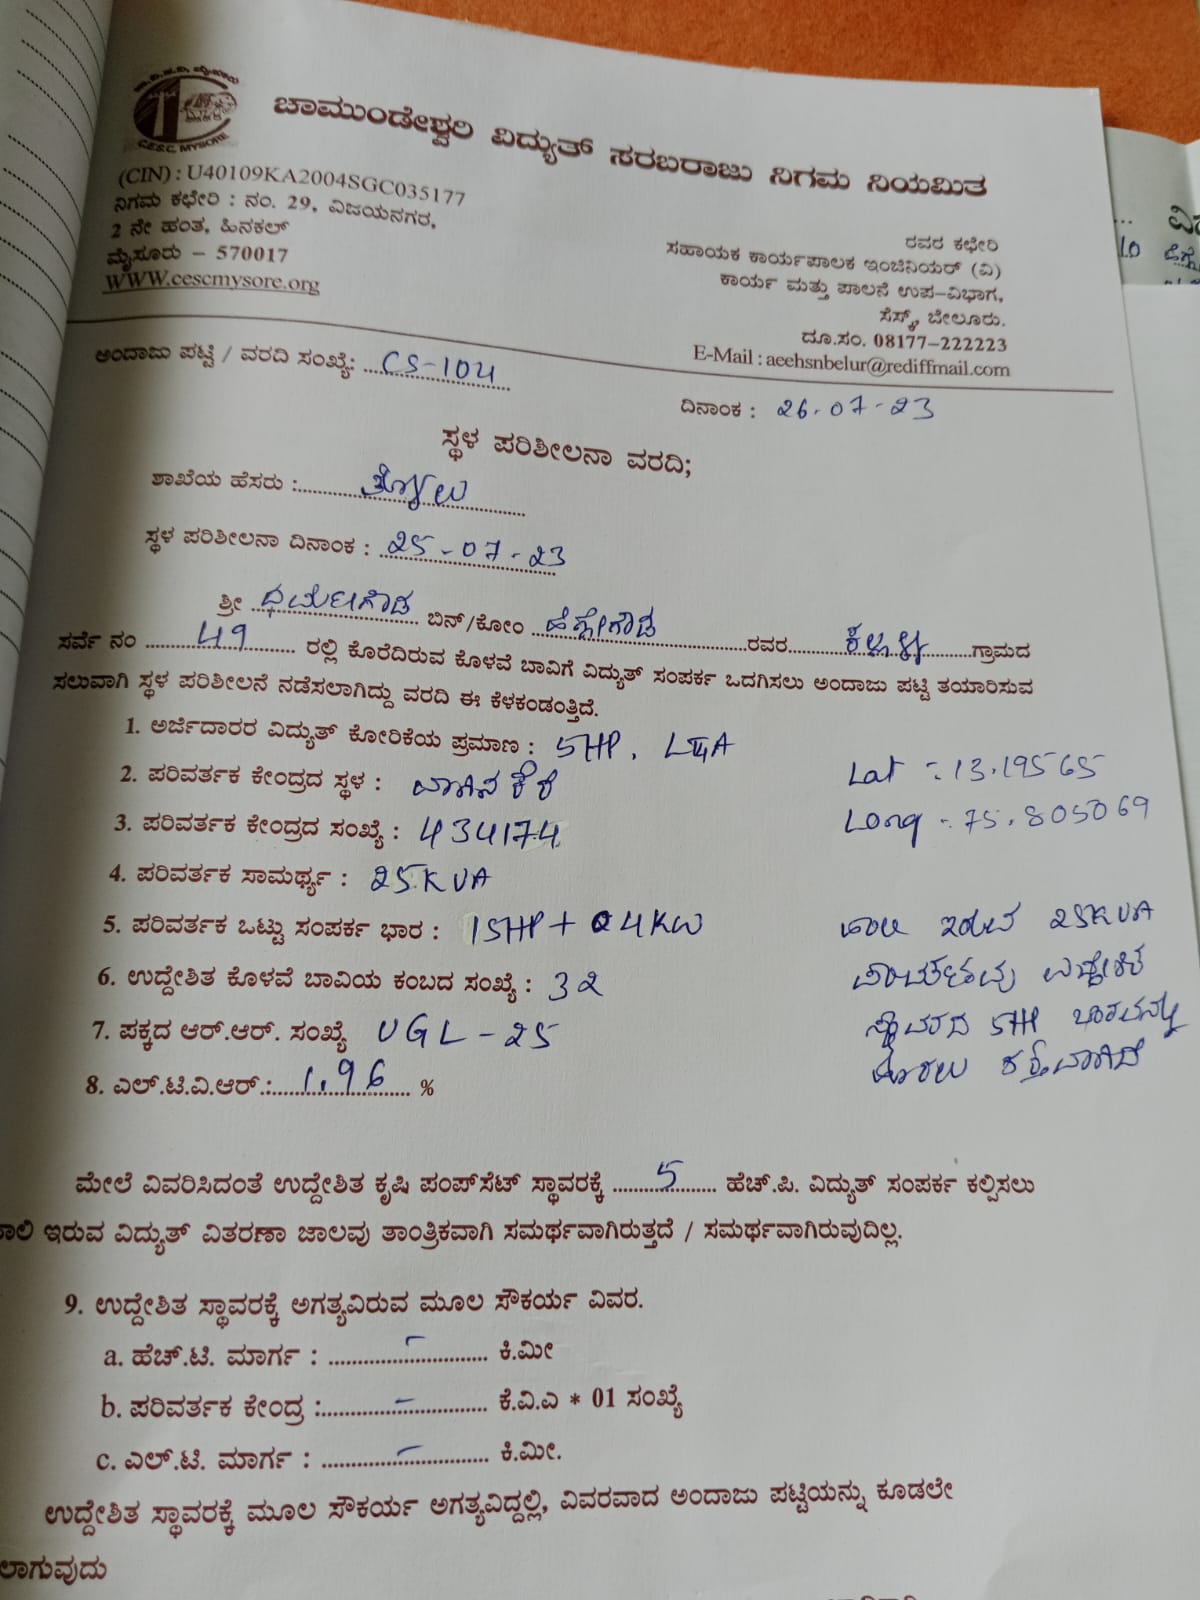 C.E.S.C. MYSORE
ಚಾಮುಂಡೇಶ್ವರಿ ವಿದ್ಯುತ್ ಸರಬರಾಜು ನಿಗಮ ನಿಯಮಿತ
(CIN) : U40109KA2004SGC035177
ನಿಗಮ ಕಛೇರಿ : ನಂ. 29, ವಿಜಯನಗರ,
2 ನೇ ಹಂತ, ಹಿನಕಲ್
ಮೈಸೂರು – 570017
WWW.cescmysore.org
ರವರ ಕಛೇರಿ
ಸಹಾಯಕ ಕಾರ್ಯಪಾಲಕ ಇಂಜಿನಿಯರ್ (ವಿ)
ಕಾರ್ಯ ಮತ್ತು ಪಾಲನೆ ಉಪ–ವಿಭಾಗ,
ಸೆಸ್ಕ್, ಬೇಲೂರು.
ದೂ.ಸಂ. 08177–222223
E-Mail : aeehsnbelur@rediffmail.com
ಅಂದಾಜು ಪಟ್ಟಿ / ವರದಿ ಸಂಖ್ಯೆ: CS-104
ದಿನಾಂಕ : 26-07-23
ಸ್ಥಳ ಪರಿಶೀಲನಾ ವರದಿ;
ಶಾಖೆಯ ಹೆಸರು :
ಸ್ಥಳ ಪರಿಶೀಲನಾ ದಿನಾಂಕ : 25-07-23
ಶ್ರೀ ಧರ್ಮೇಗೌಡ ಬಿನ್/ಕೋಂ ಹೆಗ್ಗೇಗೌಡ
ಸರ್ವೆ ನಂ 49 ರಲ್ಲಿ ಕೊರೆದಿರುವ ಕೊಳವೆ ಬಾವಿಗೆ ವಿದ್ಯುತ್ ಸಂಪರ್ಕ ಒದಗಿಸಲು ಅಂದಾಜು ಪಟ್ಟಿ ತಯಾರಿಸುವ
ರವರ ಗ್ರಾಮದ
ಸಲುವಾಗಿ ಸ್ಥಳ ಪರಿಶೀಲನೆ ನಡೆಸಲಾಗಿದ್ದು ವರದಿ ಈ ಕೆಳಕಂಡಂತ್ತಿದೆ.
1. ಅರ್ಜಿದಾರರ ವಿದ್ಯುತ್ ಕೋರಿಕೆಯ ಪ್ರಮಾಣ : 5HP.
2. ಪರಿವರ್ತಕ ಕೇಂದ್ರದ ಸ್ಥಳ :
Lat : 13.19565
3. ಪರಿವರ್ತಕ ಕೇಂದ್ರದ ಸಂಖ್ಯೆ : 434174
Long - 75.805069
4. ಪರಿವರ್ತಕ ಸಾಮರ್ಥ್ಯ : 25KVA
5. ಪರಿವರ್ತಕ ಒಟ್ಟು ಸಂಪರ್ಕ ಭಾರ : 15HP + 04KW
6. ಉದ್ದೇಶಿತ ಕೊಳವೆ ಬಾವಿಯ ಕಂಬದ ಸಂಖ್ಯೆ : 32
7. ಪಕ್ಕದ ಆರ್.ಆರ್. ಸಂಖ್ಯೆ UGL-25
8. ಎಲ್.ಟಿ.ವಿ.ಆರ್.: 1.96 %
ಹಾಲಿ ಇರುವ 25KVA
ಪರಿವರ್ತಕವು ಉದ್ದೇಶಿತ
ಸ್ಥಾವರದ 5HP ಭಾರವನ್ನು
ತೊರಲು ಶಕ್ತವಾಗಿದೆ
ಮೇಲೆ ವಿವರಿಸಿದಂತೆ ಉದ್ದೇಶಿತ ಕೃಷಿ ಪಂಪ್‌ಸೆಟ್ ಸ್ಥಾವರಕ್ಕೆ 5 ಹೆಚ್.ಪಿ. ವಿದ್ಯುತ್ ಸಂಪರ್ಕ ಕಲ್ಪಿಸಲು
ಾಲಿ ಇರುವ ವಿದ್ಯುತ್ ವಿತರಣಾ ಜಾಲವು ತಾಂತ್ರಿಕವಾಗಿ ಸಮರ್ಥವಾಗಿರುತ್ತದೆ / ಸಮರ್ಥವಾಗಿರುವುದಿಲ್ಲ.
9. ಉದ್ದೇಶಿತ ಸ್ಥಾವರಕ್ಕೆ ಅಗತ್ಯವಿರುವ ಮೂಲ ಸೌಕರ್ಯ ವಿವರ.
a. ಹೆಚ್.ಟಿ. ಮಾರ್ಗ : - ಕಿ.ಮೀ
b. ಪರಿವರ್ತಕ ಕೇಂದ್ರ : - ಕೆ.ವಿ.ಎ * 01 ಸಂಖ್ಯೆ
c. ಎಲ್.ಟಿ. ಮಾರ್ಗ : - ಕಿ.ಮೀ.
ಉದ್ದೇಶಿತ ಸ್ಥಾವರಕ್ಕೆ ಮೂಲ ಸೌಕರ್ಯ ಅಗತ್ಯವಿದ್ದಲ್ಲಿ, ವಿವರವಾದ ಅಂದಾಜು ಪಟ್ಟಿಯನ್ನು ಕೂಡಲೇ
ಲಾಗುವುದು